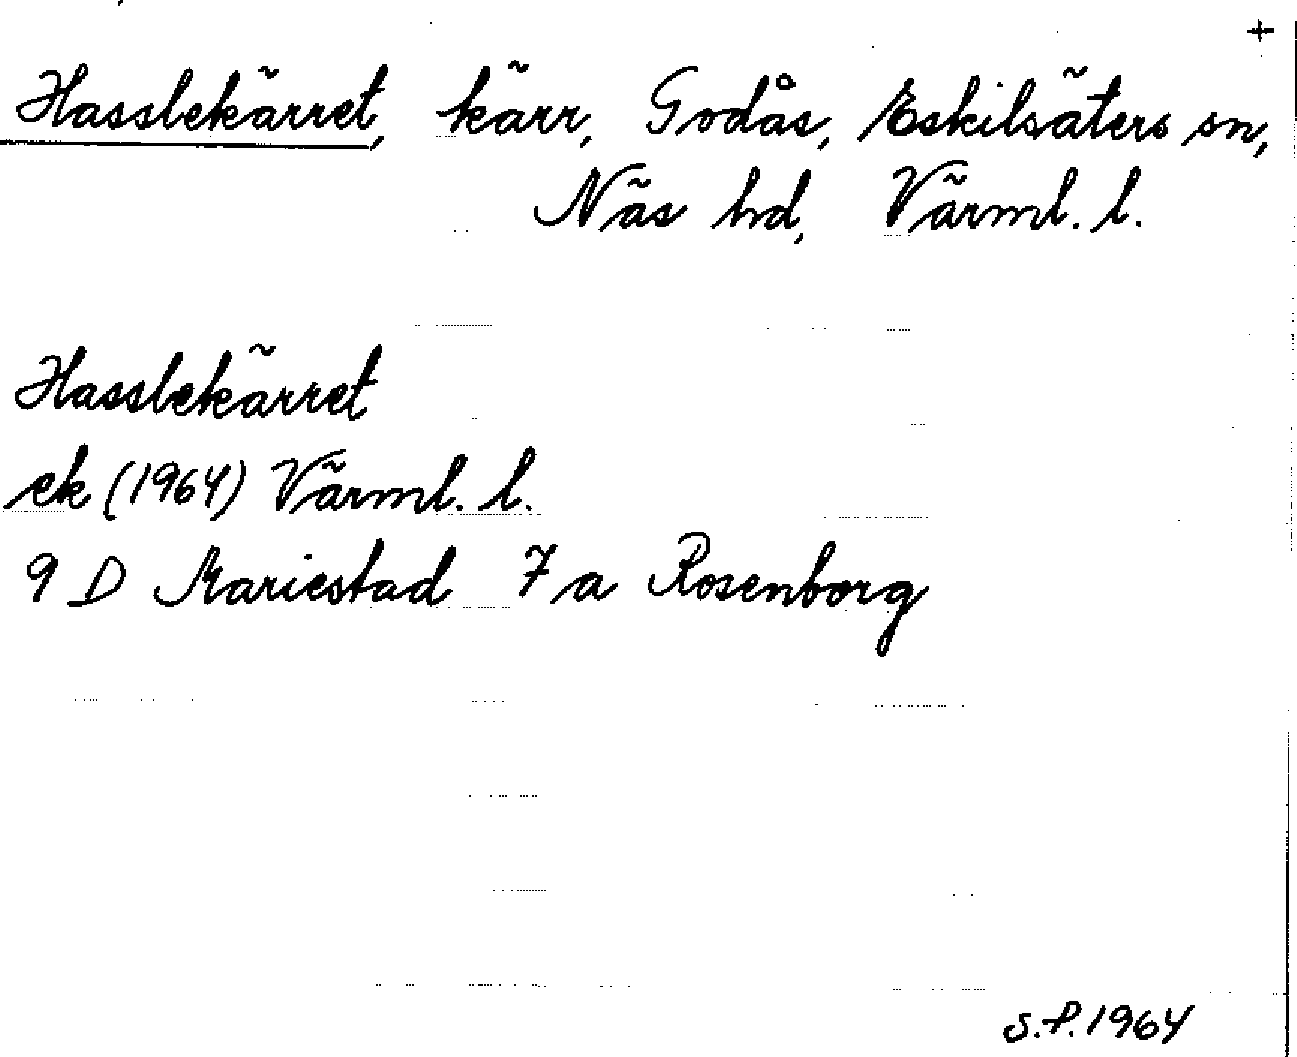 +
Hasslekärret, kärr, Godås, Eskilsäters sn,
Näs hd, Värml. l.
Hasslekärret
ek (1964) Värml. l.
9 D Mariestad 7 a Rosenborg
S.P. 1964